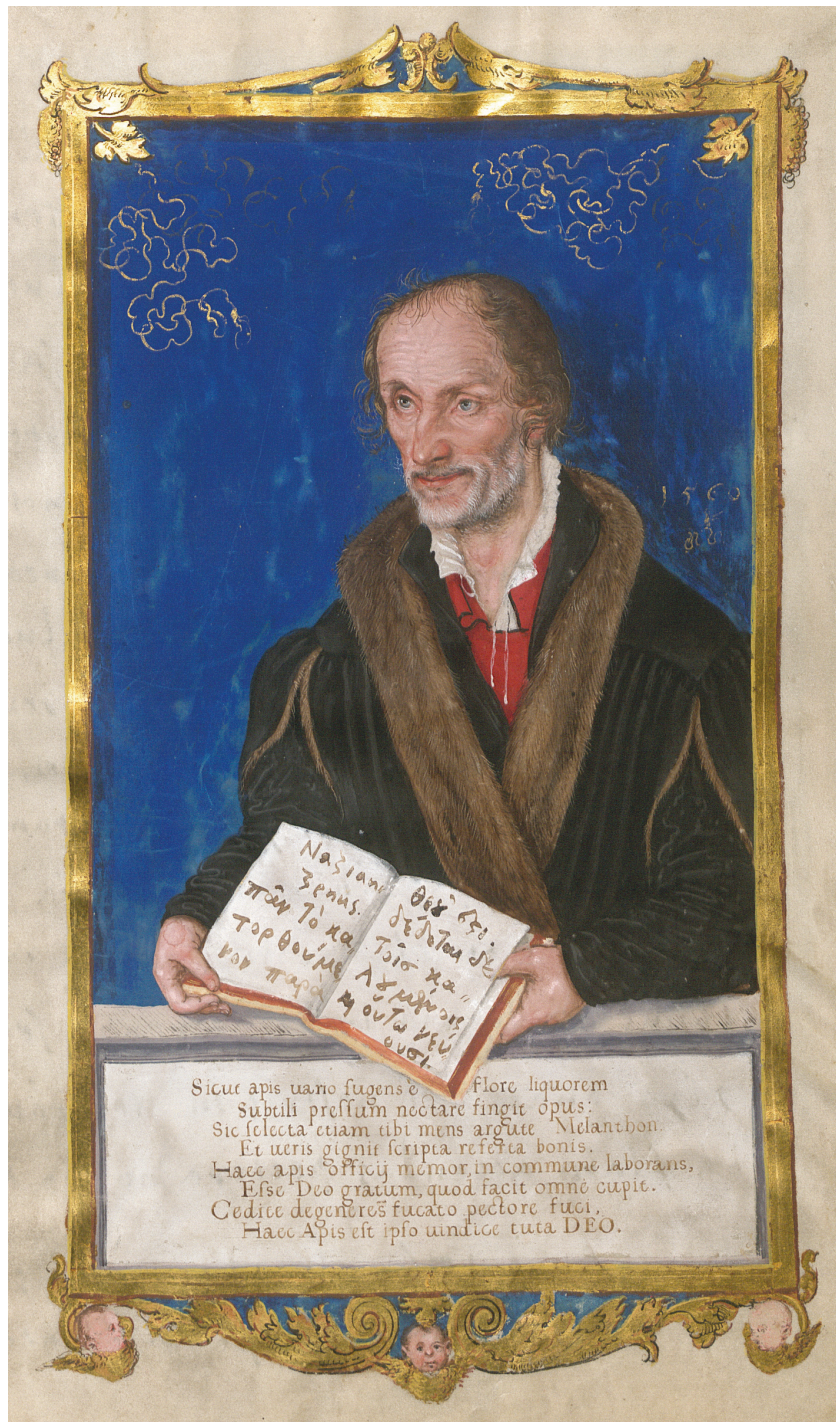 1560
Nazian
zenus.
πᾶν τὸ κα
τορθούμε
νον παρὰ
θεοῦ
δέδοται δὲ
τοῖσ κα„
λουμένοις
κ οὕτω νεύ
ουσι
Sicut apis uario sugens è flore liquorem
Subtili pressum nectare fingit opus:
Sic selecta etiam tibi mens argute Melanthon.
Et ueris gignit scripta referta bonis.
Haec apis officij memor, in commune laborans,
Esse Deo gratum, quod facit omne cupit.
Cedite degeneres fucato pectore fuci,
Haec Apis est ipso uindice tuta DEO.